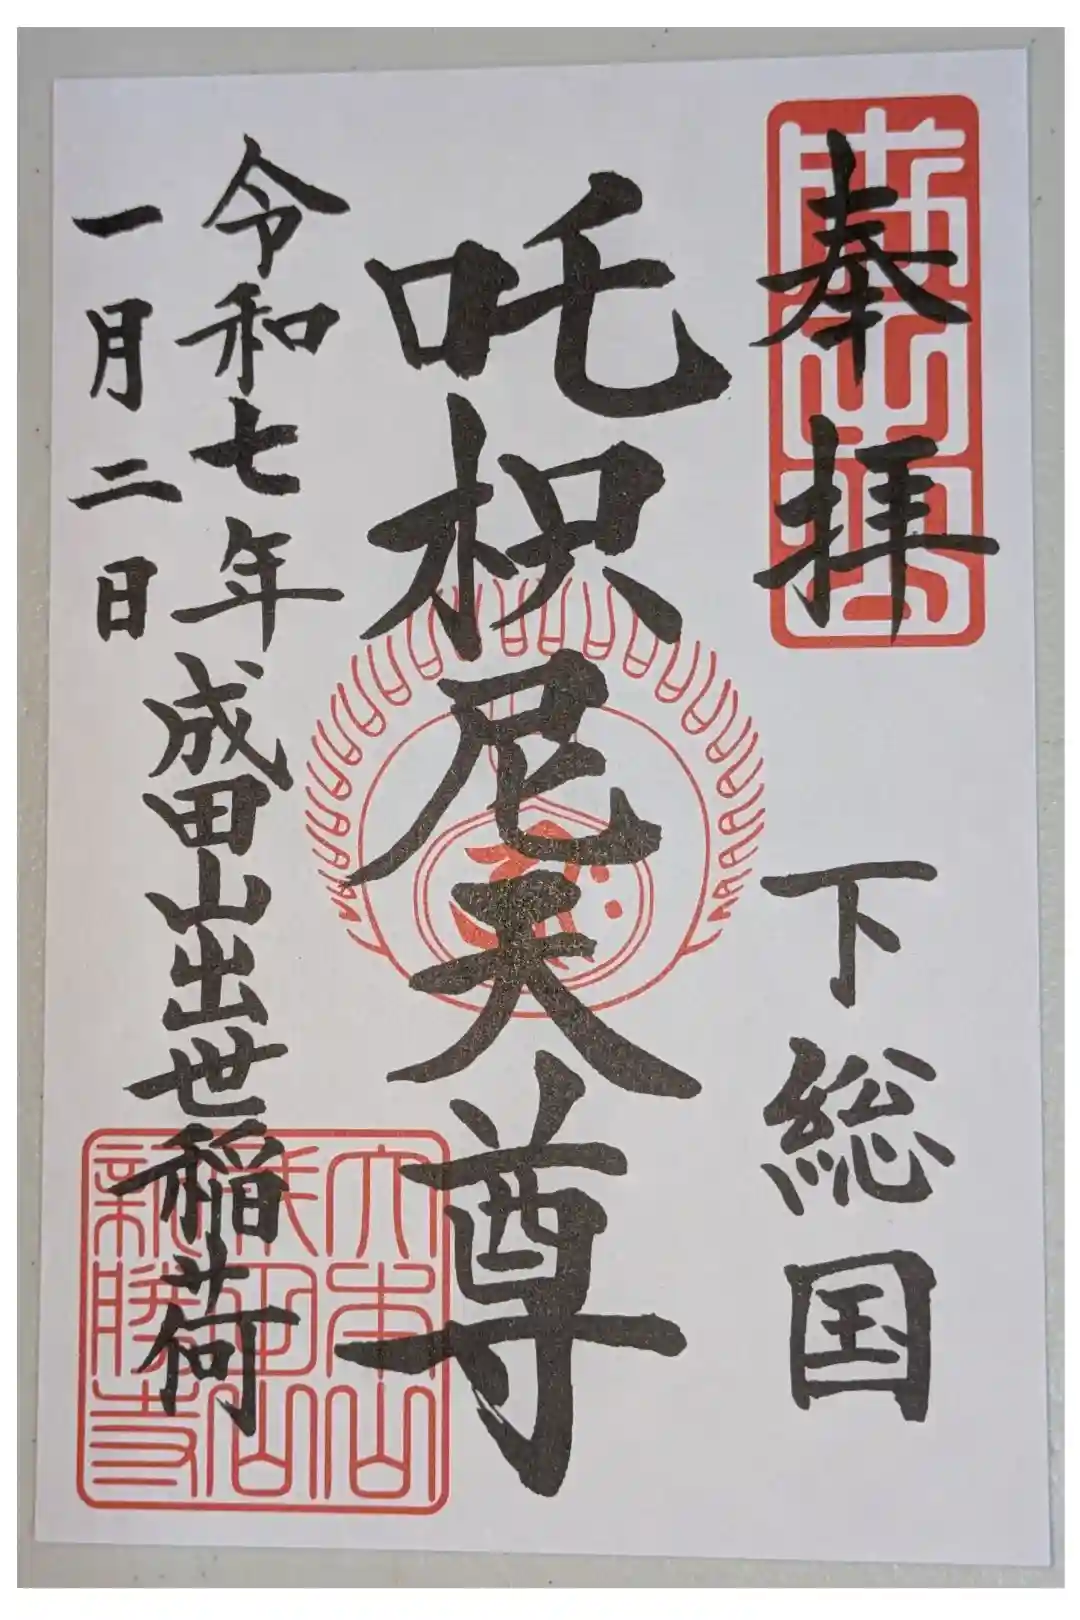 奉拝
下総国
吒枳尼天尊
令和七年
成田山出世稲荷
一月二日
大本山
成田山
新勝寺